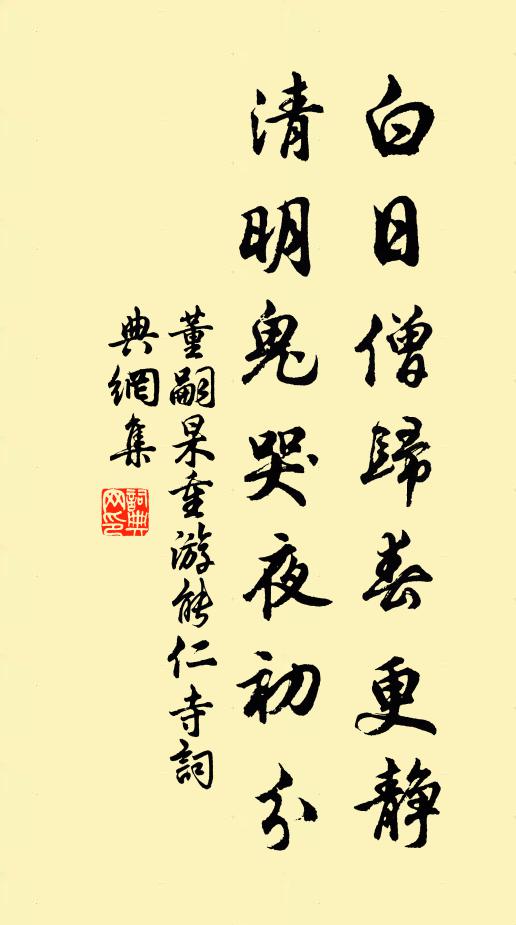 白日僧歸春更静
清明鬼哭夜初分
董嗣杲重游能仁寺詞
典網集
詞典網印